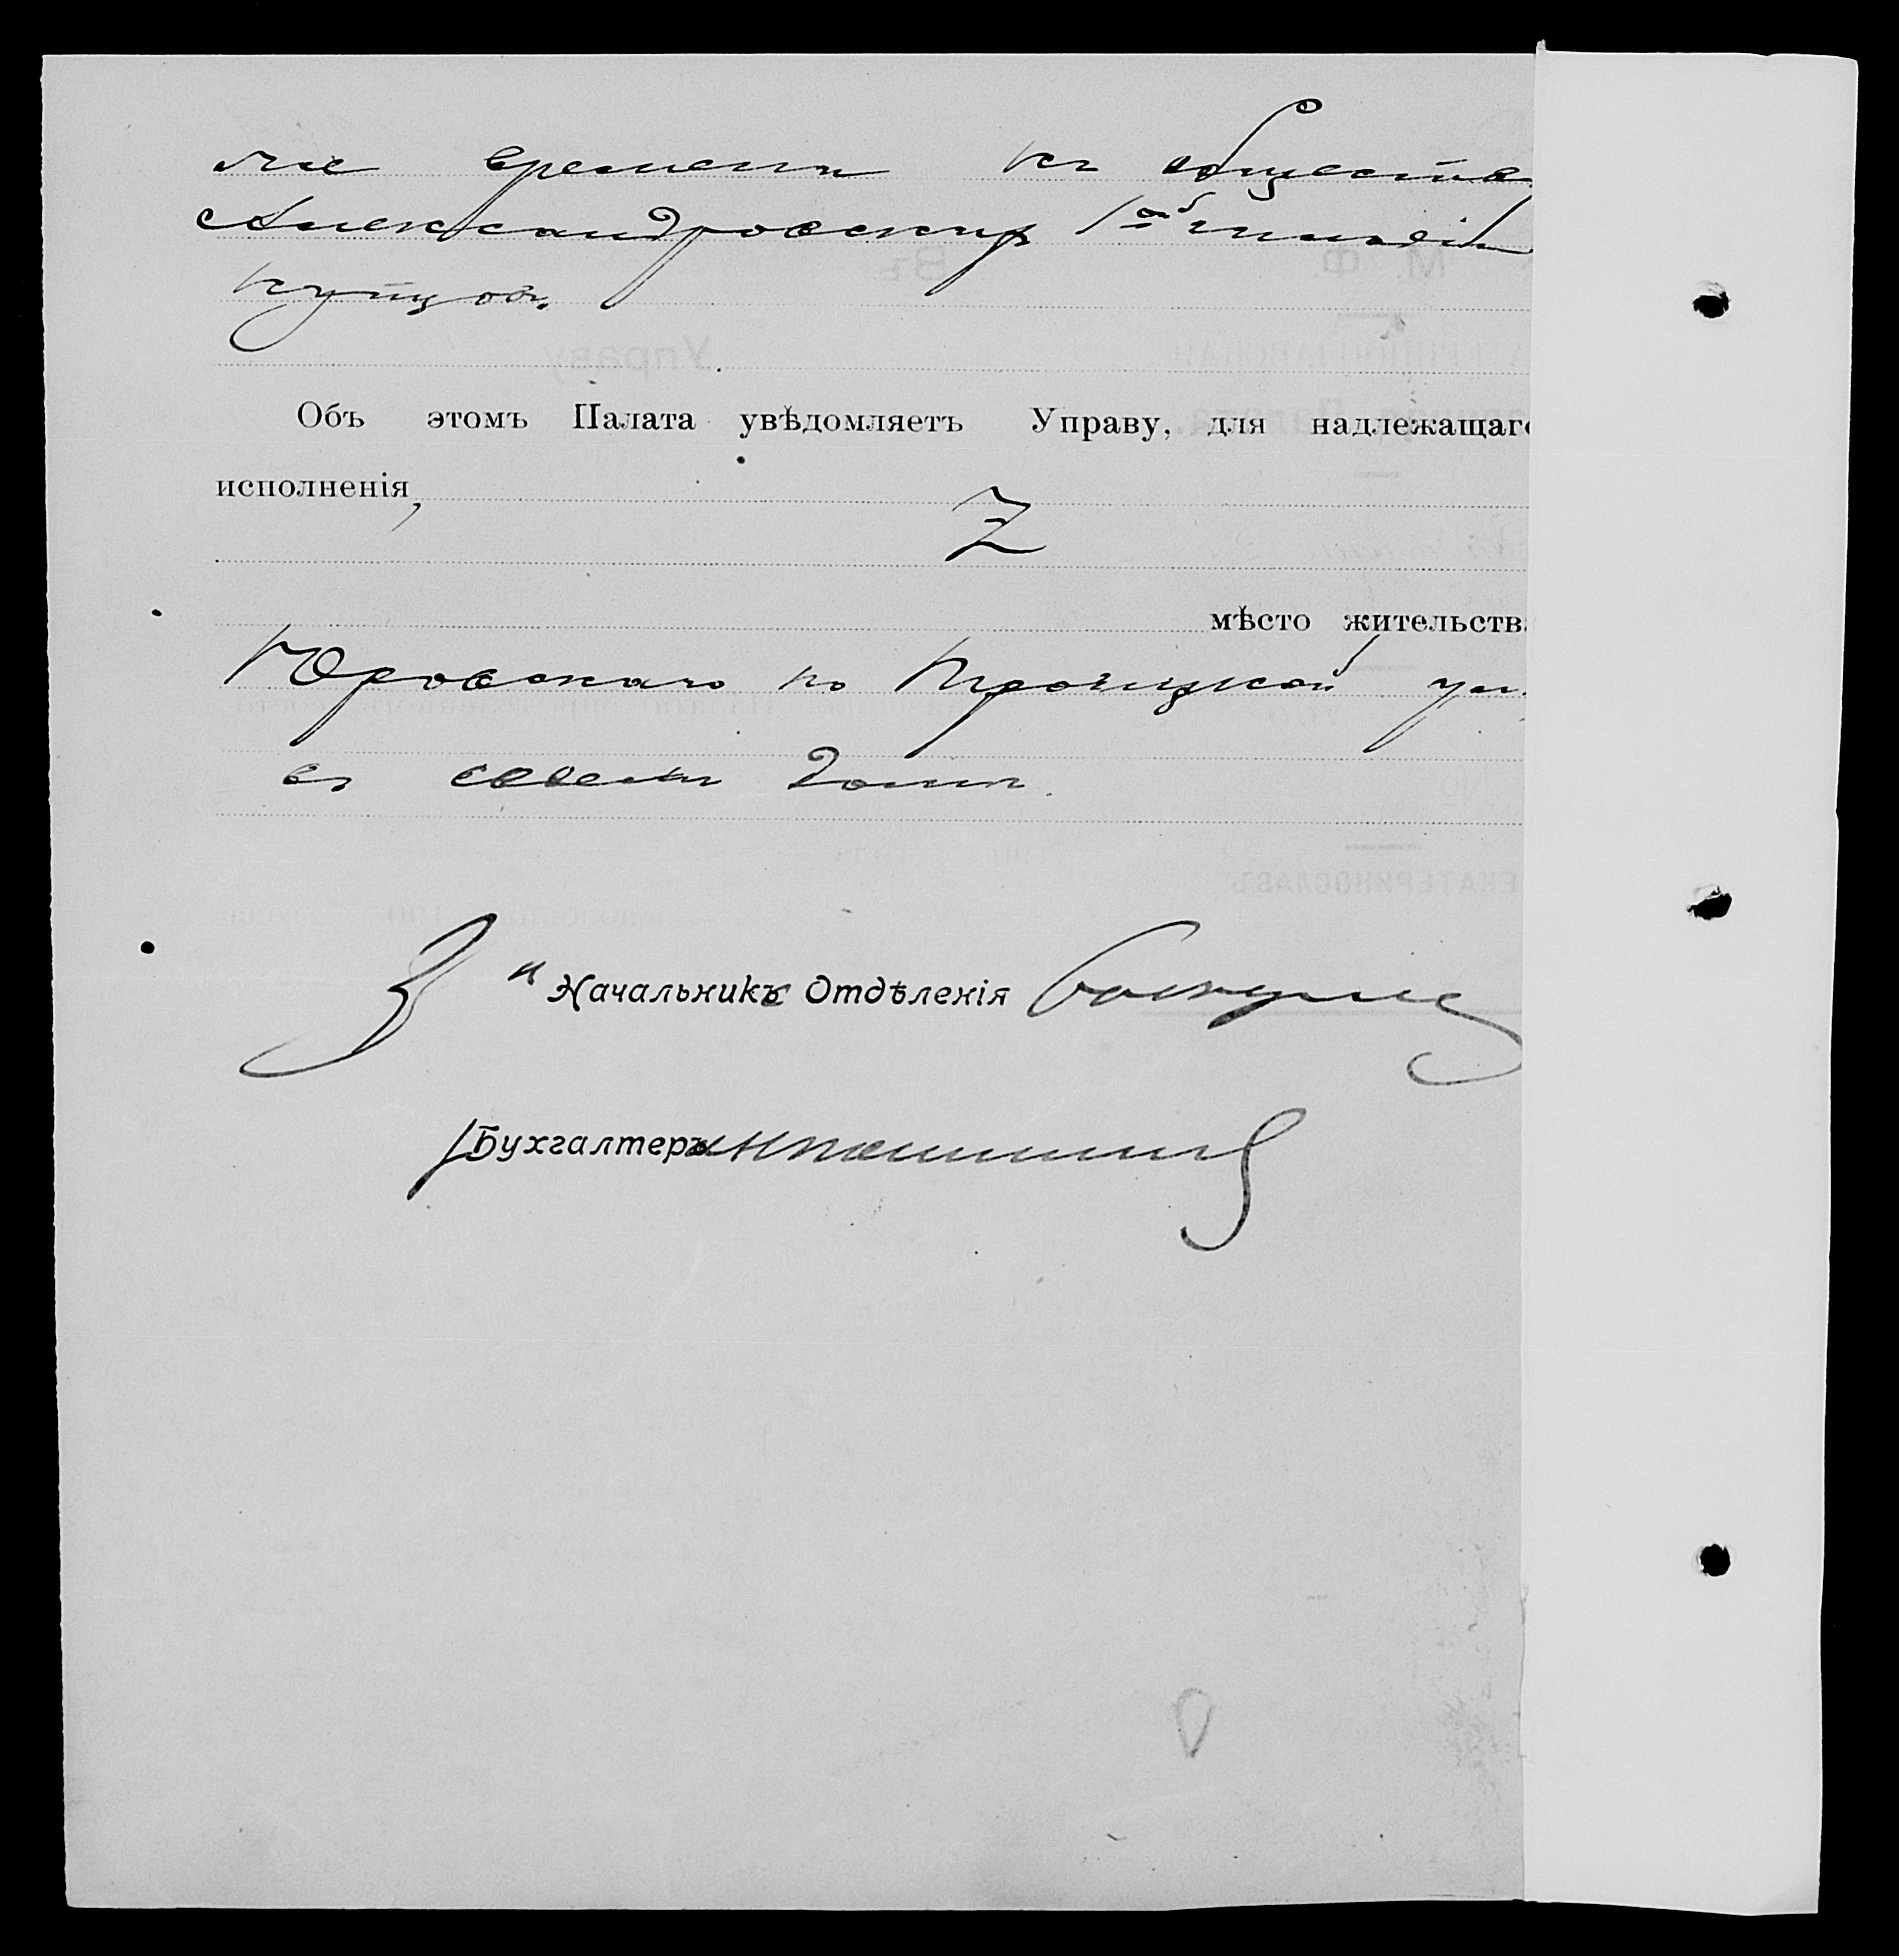 же времени къ обществу
Александровскихъ 1ой гильдіи
купцовъ.
Объ этомъ Палата увѣдомляетъ Управу, для надлежащаго
исполненія,
мѣсто жительства
Юровскаго по Троицкой ул.
въ своемъ домѣ.
Начальникъ Отдѣленія
Бухгалтеръ